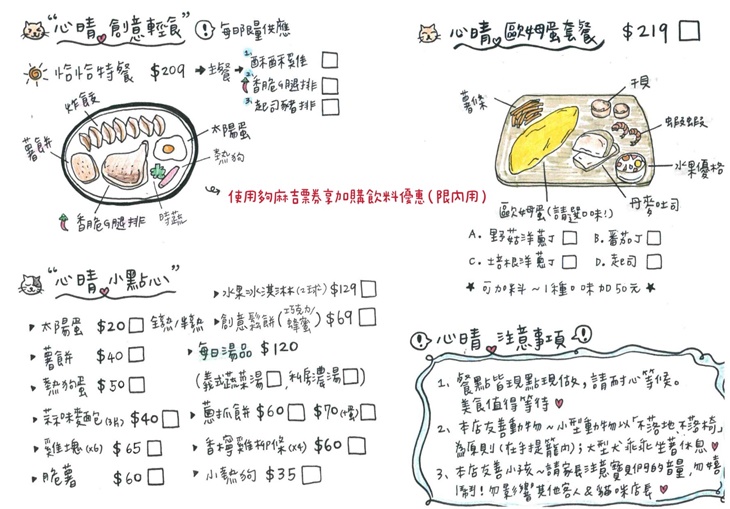 “心晴 創意輕食” ! 每日限量供應
恰恰特餐 $209 → 主餐 → 1. 酥酥雞佳
2. 香脆G腿排
3. 起司豬排
炸餃
薯餅
太陽蛋
熱狗
香脆G腿排
時蔬
使用夠麻吉票券享加購飲料優惠(限內用)
心晴 歐姆蛋套餐 $219
薯條
干貝
蝦蝦
水果優格
丹麥吐司
歐姆蛋(請選口味!)
A. 野菇洋蔥J B. 番茄J
C. 培根洋蔥J D. 起司
★ 可加料~1種口味加50元 ★
“心晴 小點心”
太陽蛋 $20 全熟/半熟
薯餅 $40
熱狗蛋 $50
蒜味麵包(3片) $40
雞塊(x6) $65
脆薯 $60
水果冰淇淋(2球) $129
創意鬆餅(巧克力/蜂蜜) $69
每日湯品 $120
(義式蔬菜湯, 私房濃湯)
蔥抓餅 $60 $70(+蛋)
香檸雞柳條(x4) $60
小熱狗 $35
! 心晴 注意事項 !
1、餐點皆現點現做,請耐心等候。
美食值得等待
2、本店友善動物~小型動物以「不落地、不落椅」
為原則(在手提籠內);大型犬乖乖坐著休息
3、本店友善小孩~請家長注意寶貝們的音量,勿嬉
鬧!勿影響其他客人&貓咪店長